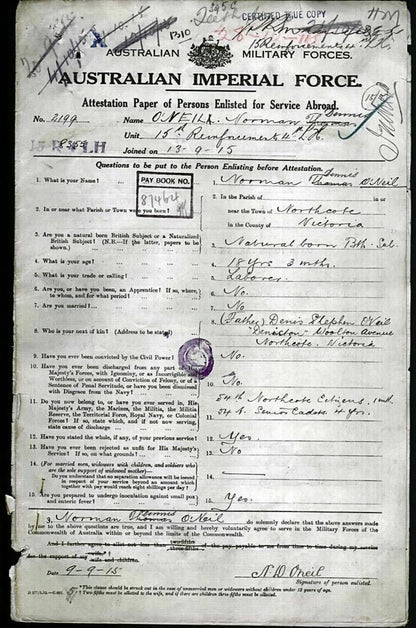 CERTIFIED TRUE COPY
AUSTRALIAN MILITARY FORCES.
AUSTRALIAN IMPERIAL FORCE.
Attestation Paper of Persons Enlisted for Service Abroad.
No. 2199 Name O'NEIL. Norman Dennis Thomas
Unit 15th Reinforcements 4th L.H.
Joined on 13-9-15
Questions to be put to the Person Enlisting before Attestation.
PAY BOOK NO.
87464
1. What is your Name? 1. Norman Dennis Thomas O'Neil
2. In or near what Parish or Town were you born? 2. In the Parish of in or
near the Town of Northcote
in the County of Victoria
3. Are you a natural born British Subject or a Naturalized
British Subject? (N.B.—If the latter, papers to be
shown.) 3. Natural born Brth. Sub.
4. What is your age? 4. 18 yrs 3 mths.
5. What is your trade or calling? 5. Labourer
6. Are you, or have you been, an Apprentice? If so, where,
to whom, and for what period? 6. No.
7. Are you married? 7. No
8. Who is your next of kin? (Address to be stated) 8. (Father) Denis Stephen O'Neil
"Deniston" Woolton Avenue
Northcote. Victoria
9. Have you ever been convicted by the Civil Power? 9. No.
10. Have you ever been discharged from any part of His
Majesty's Forces, with Ignominy, or as Incorrigible and
Worthless, or on account of Conviction of Felony, or of a
Sentence of Penal Servitude, or have you been dismissed
with Disgrace from the Navy? 10. No.
11. Do you now belong to, or have you ever served in, His
Majesty's Army, the Marines, the Militia, the Militia
Reserve, the Territorial Force, Royal Navy, or Colonial
Forces? If so, state which, and if not now serving,
state cause of discharge 11. 54th Northcote Citizens.
Senior Cadets 4 yrs.
12. Have you stated the whole, if any, of your previous service? 12. Yes.
13. Have you ever been rejected as unfit for His Majesty's
Service? If so, on what grounds? 13. No
14. (For married men, widowers with children, and soldiers who
are the sole support of widowed mother)—
Do you understand that no separation allowance will be issued
in respect of your service beyond an amount which
together with pay would reach eight shillings per day? 14.
15. Are you prepared to undergo inoculation against small pox
and enteric fever? 15. Yes.
I, Norman Dennis Thomas O'Neil do solemnly declare that the above answers made
by me to the above questions are true, and I am willing and hereby voluntarily agree to serve in the Military Forces of the
Commonwealth of Australia within or beyond the limits of the Commonwealth.
Date 9-9-15
N D O'Neil
Signature of person enlisted.
*This clause should be struck out in the case of unmarried men or widowers without children under 18 years of age.